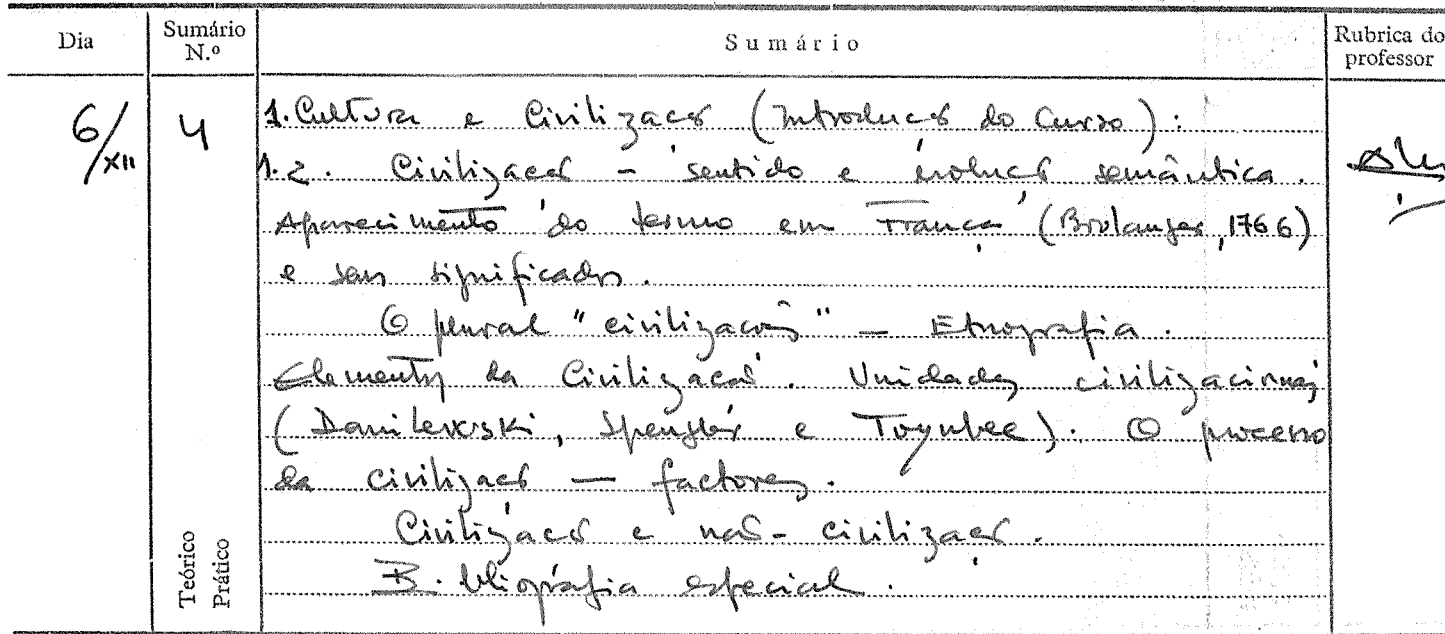 Dia
Sumário N.º
Sumário
Rubrica do professor
6/XII
4
1. Cultura e Civilização (Introdução do Curso):
1.2. Civilização - sentido e evolução semântica.
Aparecimento do termo em França (Boulanger, 1766)
e seus significados.
O plural "civilizações" - Etnografia.
Elementos da Civilização. Unidades civilizacionais
(Danilevski, Spengler e Toynbee). O processo
da civilização — factores.
Civilização e não-civilização.
Bibliografia especial.
Teórico
Prático